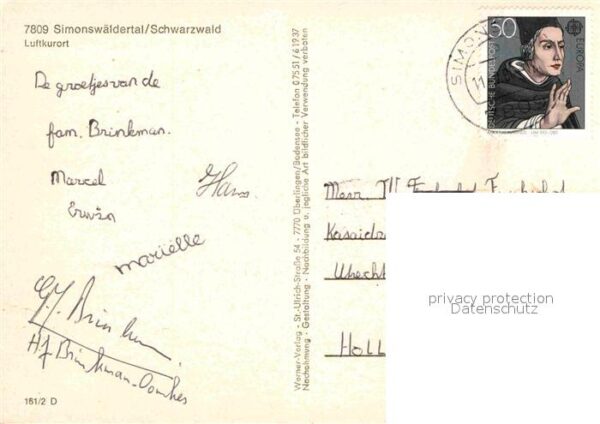 7809 Simonswäldertal/Schwarzwald
Luftkurort
De groetjes van de
fam. Brinkman.
Marcel
Erwin
Hans
mariëlle
G.J. Brinkman
HJ Brinkman-Combes
161/2 D
Werner-Verlag - St.-Ulrich-Straße 54 - 7770 Überlingen/Bodensee - Telefon 07551/61937
Nachahmung - Gestaltung - Nachbildung u. jegliche Art bildlicher Verwendung verboten
SIMON
11
60
EUROPA
DEUTSCHE BUNDESPOST
Utrecht
HOLL
privacy protection
Datenschutz